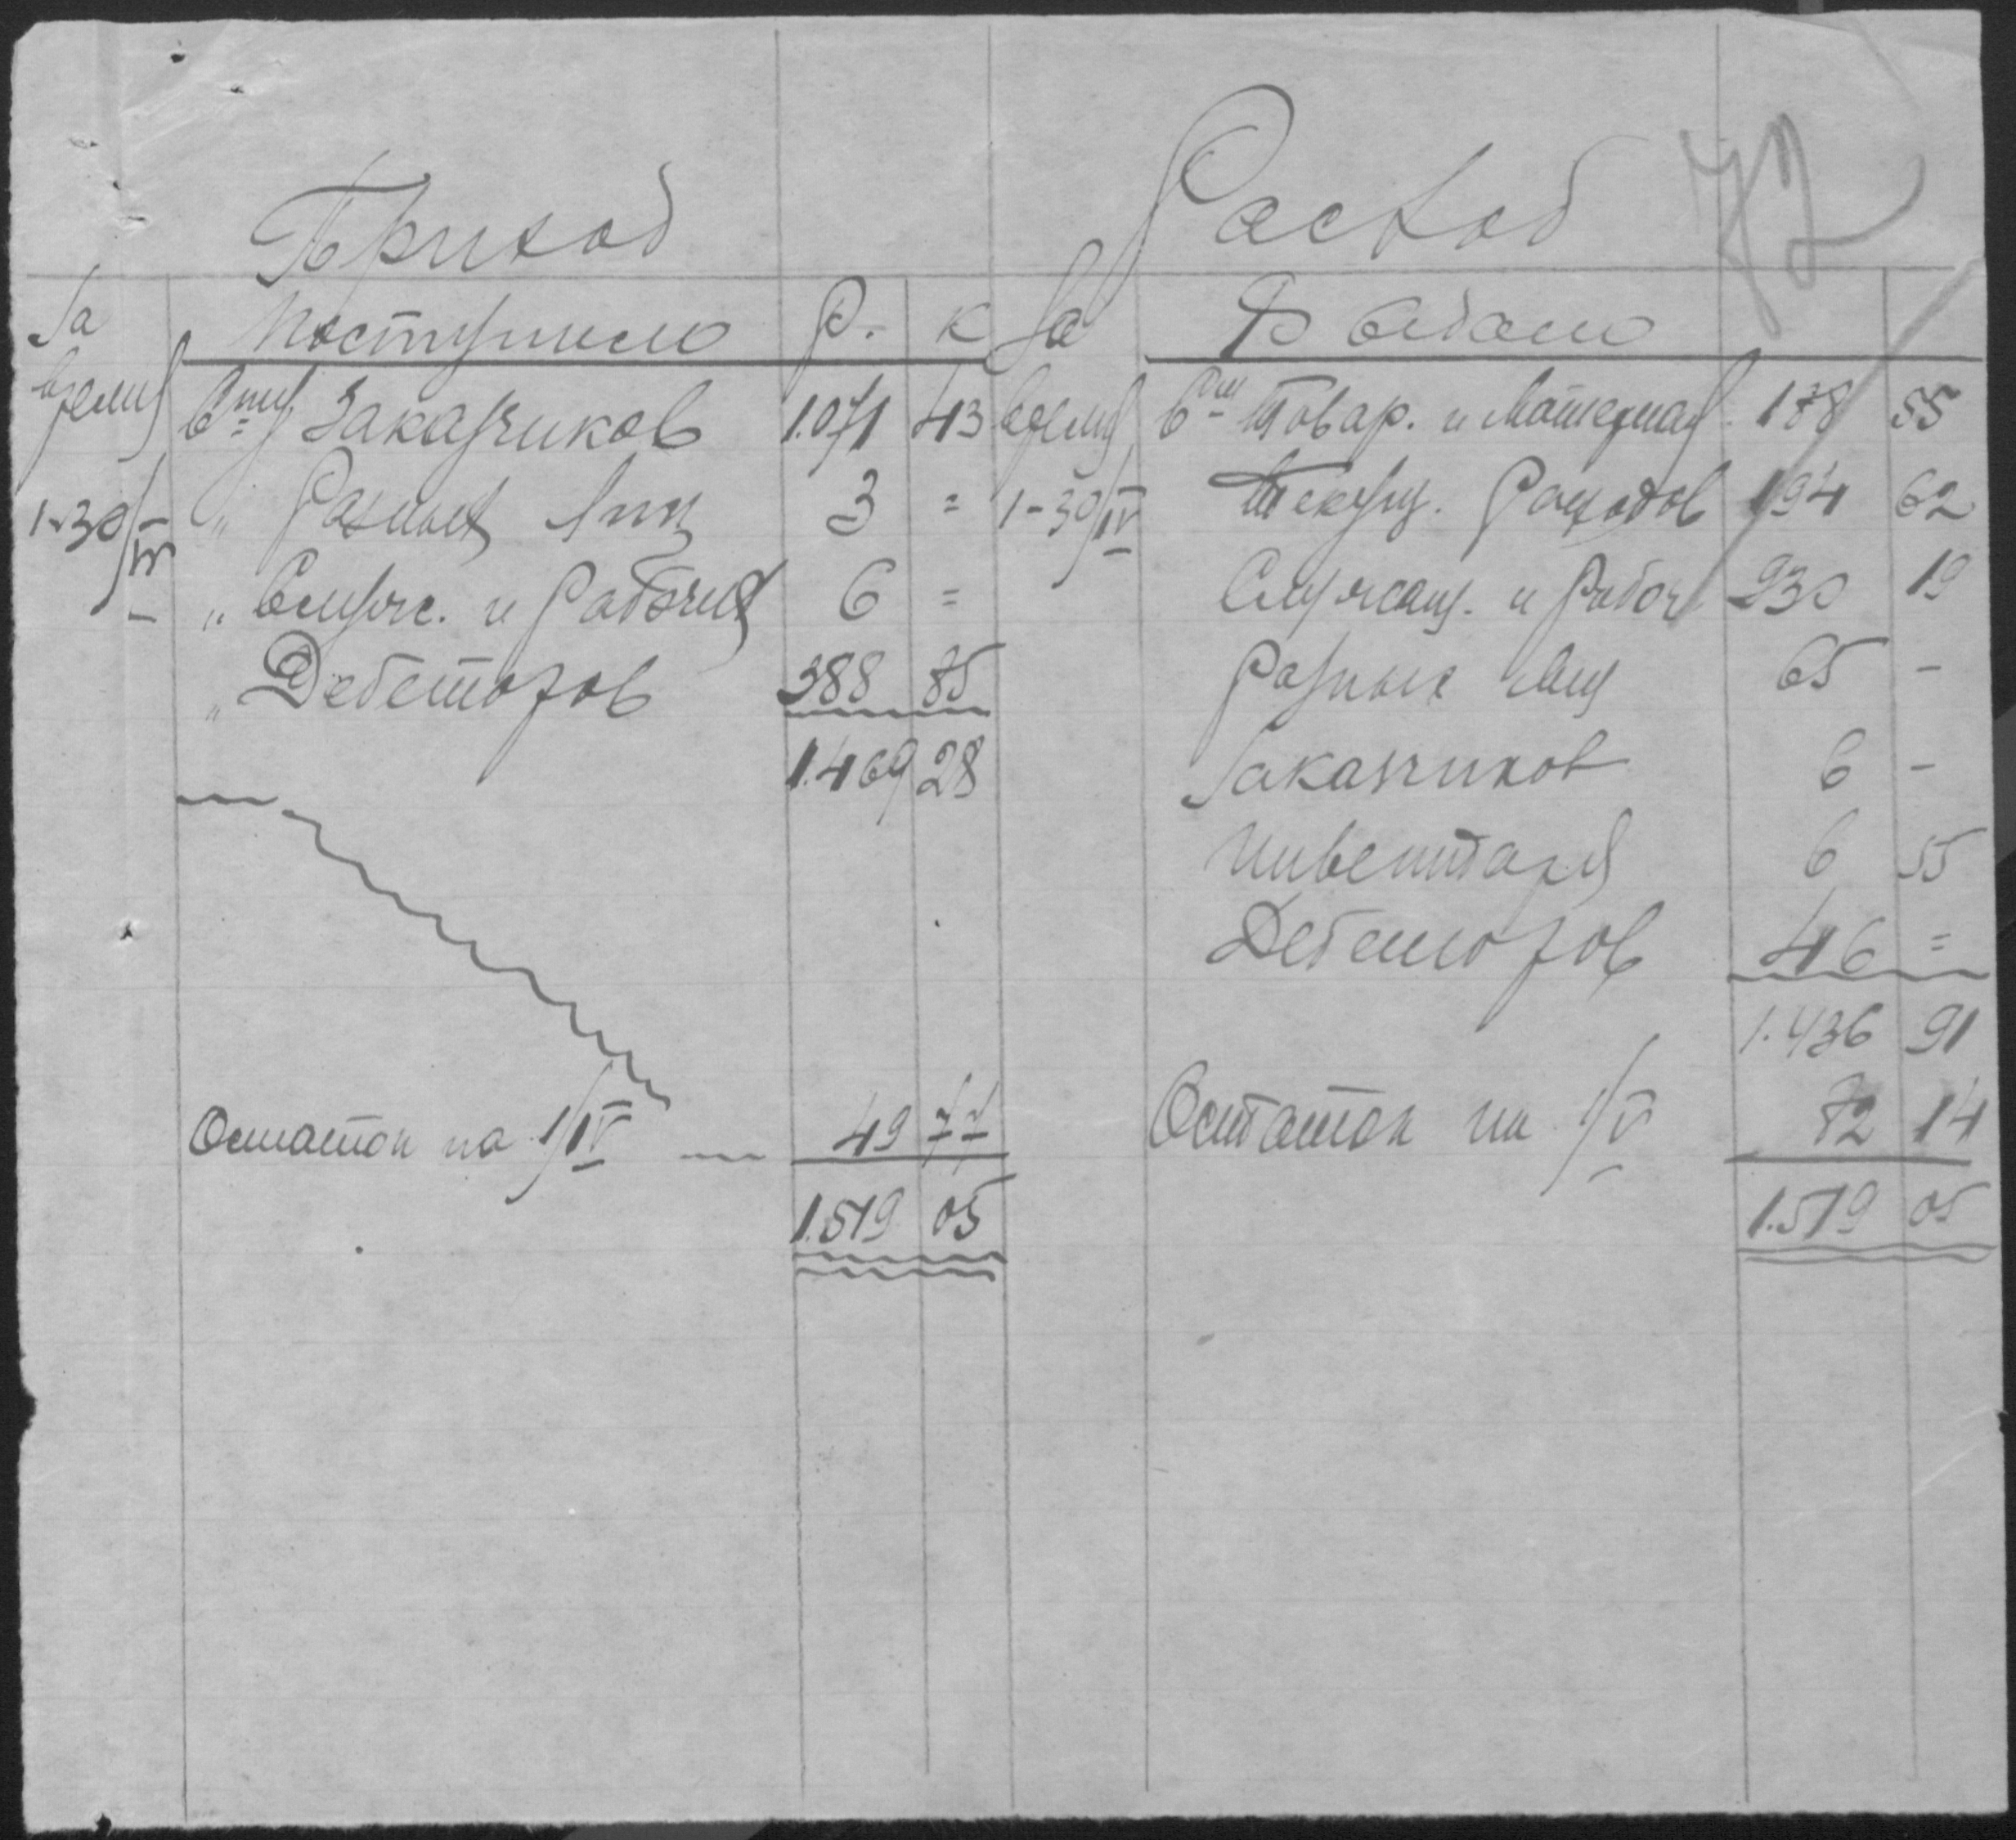 72
Приход Расход
За Поступило Р. К За Выдано
время Сч Заказчиков 1.071 43 время Сч Товар. и Материал. 178 55
1-30/IV " Разных лиц 3 = 1-30/IV Текущ. Расходов 194 62
" Служ. и Рабочих 6 = Служащ. и Рабоч 930 19
" Дебеторов 388 85 Разных лиц 65 -
1.469 28 Заказчиков 6 -
Инвентаря 6 55
Дебеторов 46 =
1.436 91
Остаток на 1/IV — 49 77 Остаток на 1/V 82 14
1.519 05 1.519 05